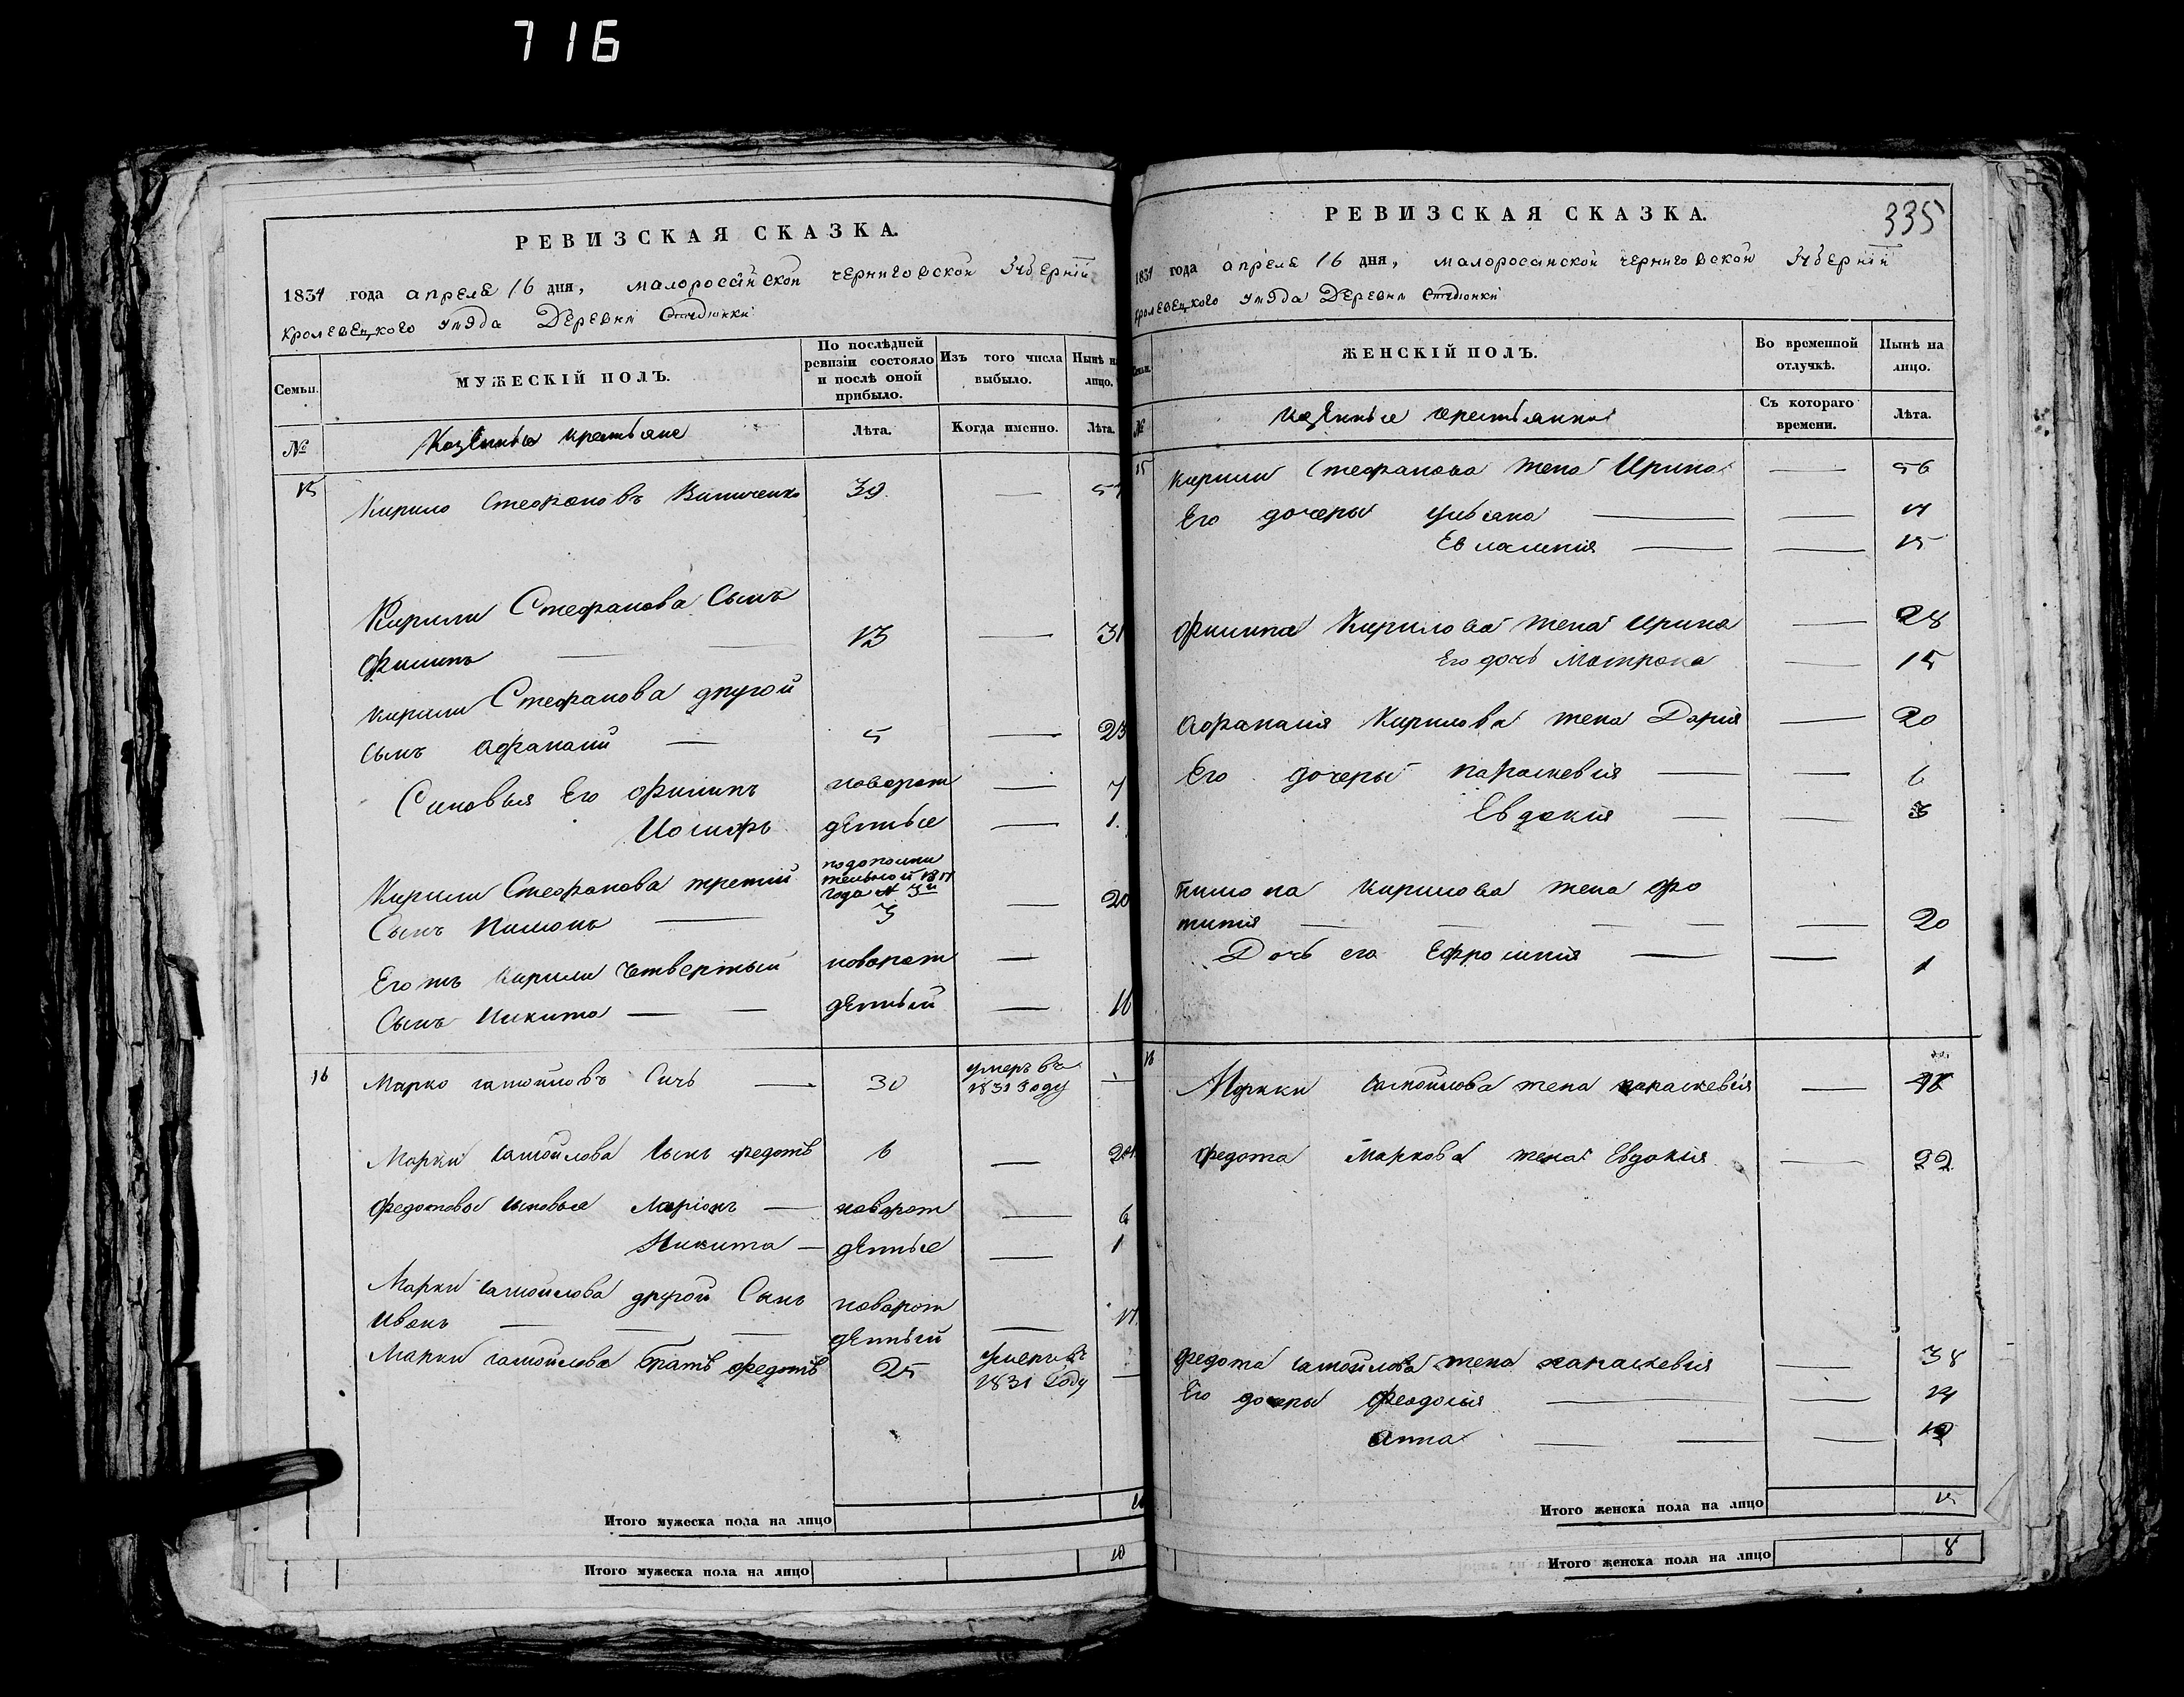 716
РЕВИЗСКАЯ СКАЗКА.
1834 года апреля 16 дня, малоросійской черниговской Губерніи
кролевецкого уѣзда Деревни
Семьи.
МУЖЕСКІЙ ПОЛЪ.
По послѣдней ревизіи состояло и послѣ оной прибыло.
Изъ того числа выбыло.
Нынѣ на лицо.
№
Казенные крестьяне
Лѣта.
Когда именно.
Лѣта.
15 Кирило Стефановъ 39. —
Кирили Стефанова Сынъ
Филипъ — — 13 — 31
Кирили Стефанова другой
Сынъ Афанасій — 5 — 23
Синовья Его Филипъ новорож — 7
Иосифъ денные — 1.
Кирили Стефанова третій
года № 3й
Сынъ Пимонъ — 3 — 20
Егожъ Кирили Четвертый новорож —
Сынъ Никита — — денный — 16
16 Марко Самойловъ Сичь — 30 умеръ въ 1831 Году —
Марки Самойлова Сынъ Федотъ 6 — 24
Федотовы Сыновья Ларіонъ — новорож — 6
Никита — денные — 1
Марки Самойлова другой Сынъ новорож
Иванъ — — — денный —
Марки Самойлова братъ Федотъ 25 умеръ въ 1831 Году —
Итого мужеска пола на лицо
Итого мужеска пола на лицо 10
РЕВИЗСКАЯ СКАЗКА.
335
1834 года апреля 16 дня, малоросийской черниговской Губерніи
кролевецкого уѣзда Деревни
ЖЕНСКІЙ ПОЛЪ.
Во временной отлучкѣ.
Нынѣ на лицо.
№
Казенные крестьянки
Съ котораго времени.
Лѣта.
15 Кирили Стефанова жена Ирина — 56
Его дочеры Ульяна — — 17
Евлампія — — 15
Филипа Кирилова жена Ирина — 28
Его дочь Матрона — 15
Афанасія Кирилова жена Дарія — 20
Его дочеры параскевія — — 6
Евдокія — — 3
Пимона Кирилова жена Фо
тинія — — — — — 20
Дочь его Ефросинія — — 1
16 Марки Самойлова жена параскевія —
Федота Маркова жена Евдокія — 22
Федота Самойлова жена параскевія — 38
Его дочеры Феодосія — — 14
Анна — — — 12
Итого женска пола на лицо 15
Итого женска пола на лицо 8